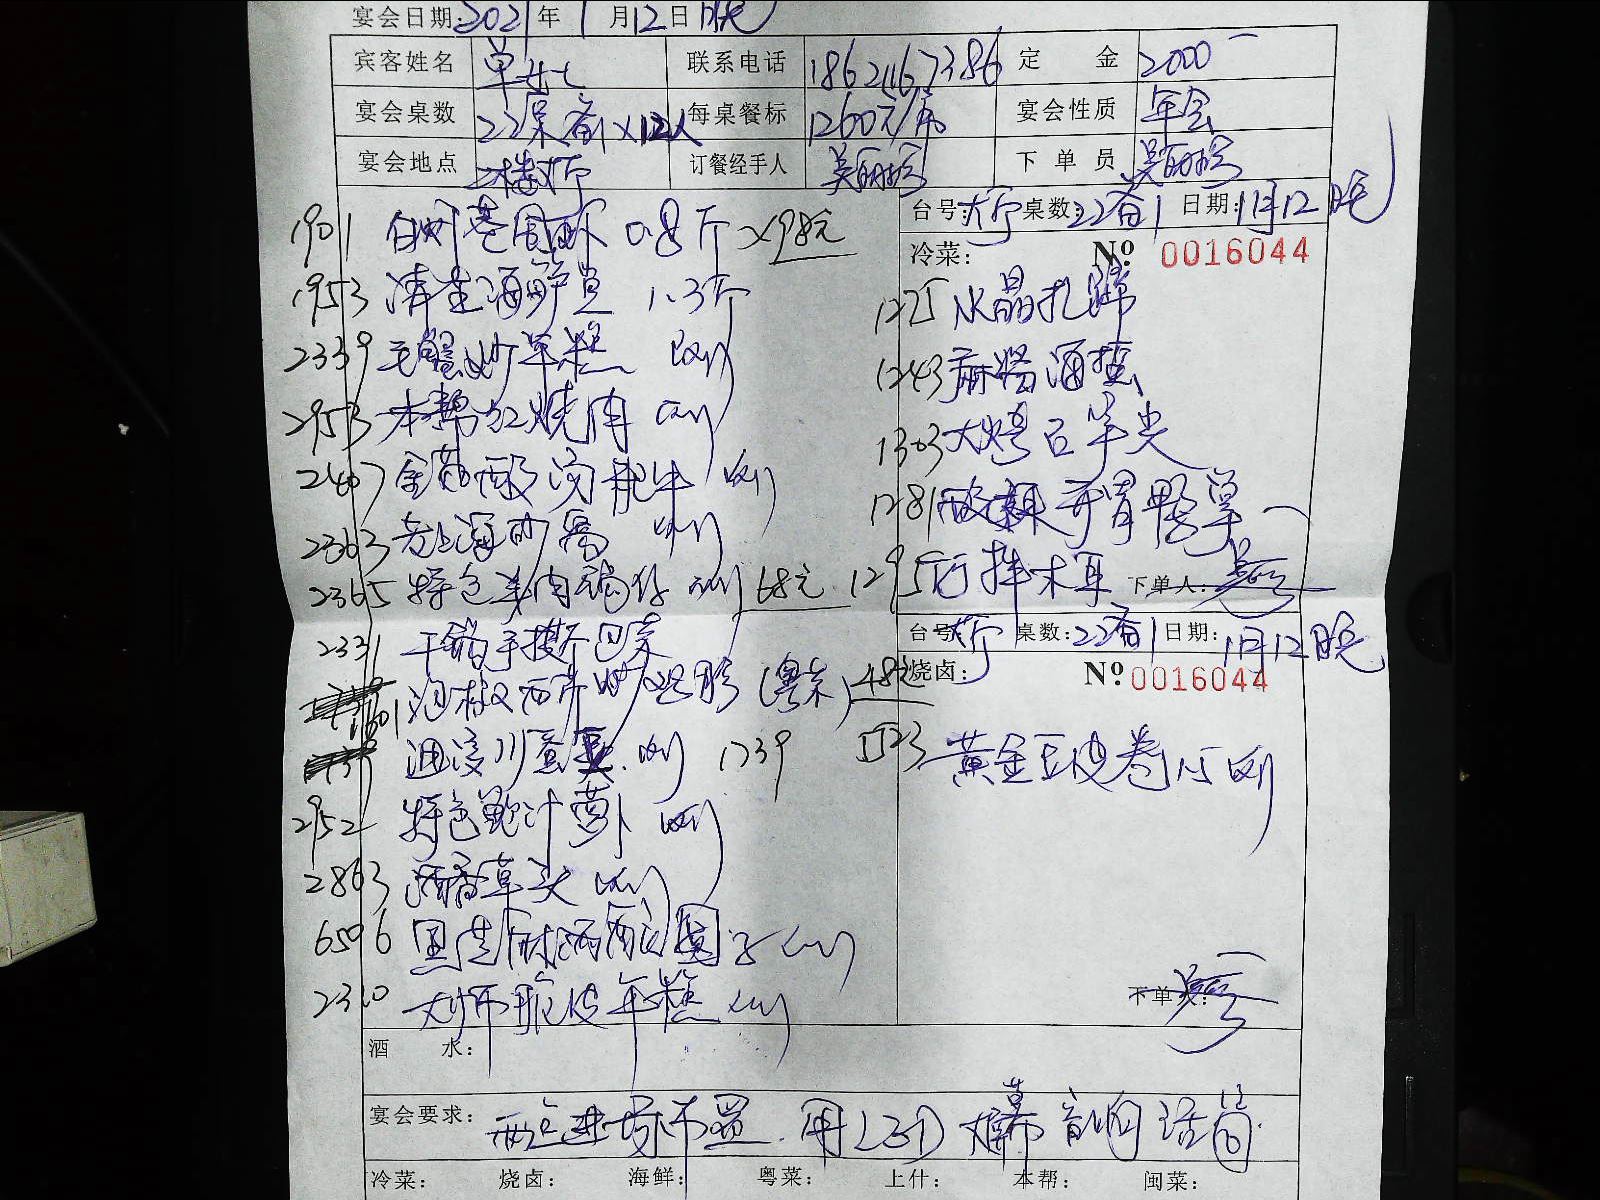 宴会日期: 2021年1月12日晚
宾客姓名 单女士 联系电话 定金 2000
宴会桌数 22桌备1×12人 每桌餐标 1260元/席 宴会性质 年会
宴会地点 二楼大厅 订餐经手人 下单员
台号: 大厅 桌数: 22备1 日期: 1月12晚
1901 白灼基围虾 0.8斤 ×98元
冷菜: № 0016044
1953 清蒸海鲈鱼 1.3斤
1225 水晶扎蹄
2339 毛蟹炒年糕 (例)
1243 麻酱海蜇
2953 本帮红烧肉 (例)
1303 大烤石笋尖
2407 金菇酸汤肥牛 (例)
1281 酸辣开胃鸭掌
2363 老上海砂锅 (例)
2365 特色羊肉锅仔 (例) 68元
1295 巧拌木耳 下单人:
2331 干锅手撕包菜
台号: 大厅 桌数: 22备1 日期: 1月12晚
1601 泡椒西芹炒 (粤菜) 48元
烧卤: № 0016044
(例) 1739
5523 黄金豆皮卷 (例)
2952 特色鲍汁萝卜 (例)
2863 酒香草头 (例)
6506 圆子 (例)
2310 大师脆皮年糕 (例)
下单人:
酒水:
宴会要求: 进场布置. 用LED 大屏幕 音响 话筒.
冷菜: 烧卤: 海鲜: 粤菜: 上什: 本帮: 闽菜: